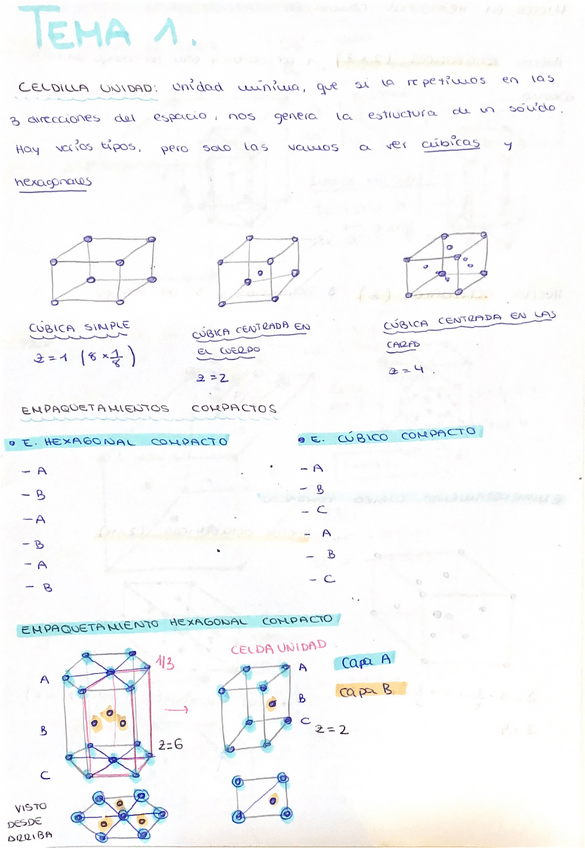 TEMA 1.
CELDILLA UNIDAD: Unidad mínima, que si la repetimos en las
3 direcciones del espacio, nos genera la estructura de un sólido.
Hay varios tipos, pero solo las vamos a ver cúbicas y
hexagonales
CÚBICA SIMPLE
z = 1 (8 × 1/8)
CÚBICA CENTRADA EN
EL CUERPO
z = 2
CÚBICA CENTRADA EN LAS
CARAS
z = 4.
EMPAQUETAMIENTOS COMPACTOS
• E. HEXAGONAL COMPACTO
- A
- B
- A
- B
- A
- B
• E. CÚBICO COMPACTO
- A
- B
- C
- A
- B
- C
EMPAQUETAMIENTO HEXAGONAL COMPACTO
A
B
C
1/3
z=6
CELDA UNIDAD
A
B
C
z = 2
Capa A
Capa B
VISTO
DESDE
ARRIBA